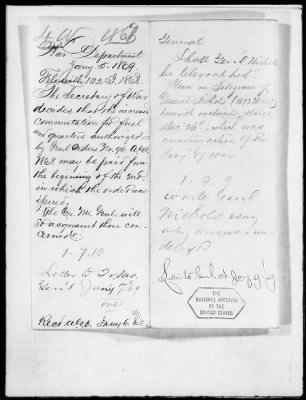 4 W 1868
War Department
Jany 5. 1869.
File with 102 S. 1868.
The Secretary of War
decides that the increased
commutation for fuel
and quarters authorized
by Genl Orders No. 96 A.G.O.
1868 may be paid from
the beginning of the
in which the order was
issued.
The Qr. Mr. Genl. will
so acquaint those con-
cerned
1. 7. 10
Letter to Qr. Mr.
Gen'l Jany 7. 69
one
Read. Jany 6. 69
General
Shall Gen'l Nichols
be telegraphed?
Seen as telegram of
General Nichols
herewith, dated
Dec 26", which was
awaiting action of the
Secy of War
1. 9. 9
write Genl
Nichols &
why answer was
delayed
Letter to Genl Jany 9/69
THE
NATIONAL ARCHIVES
OF THE
UNITED STATES